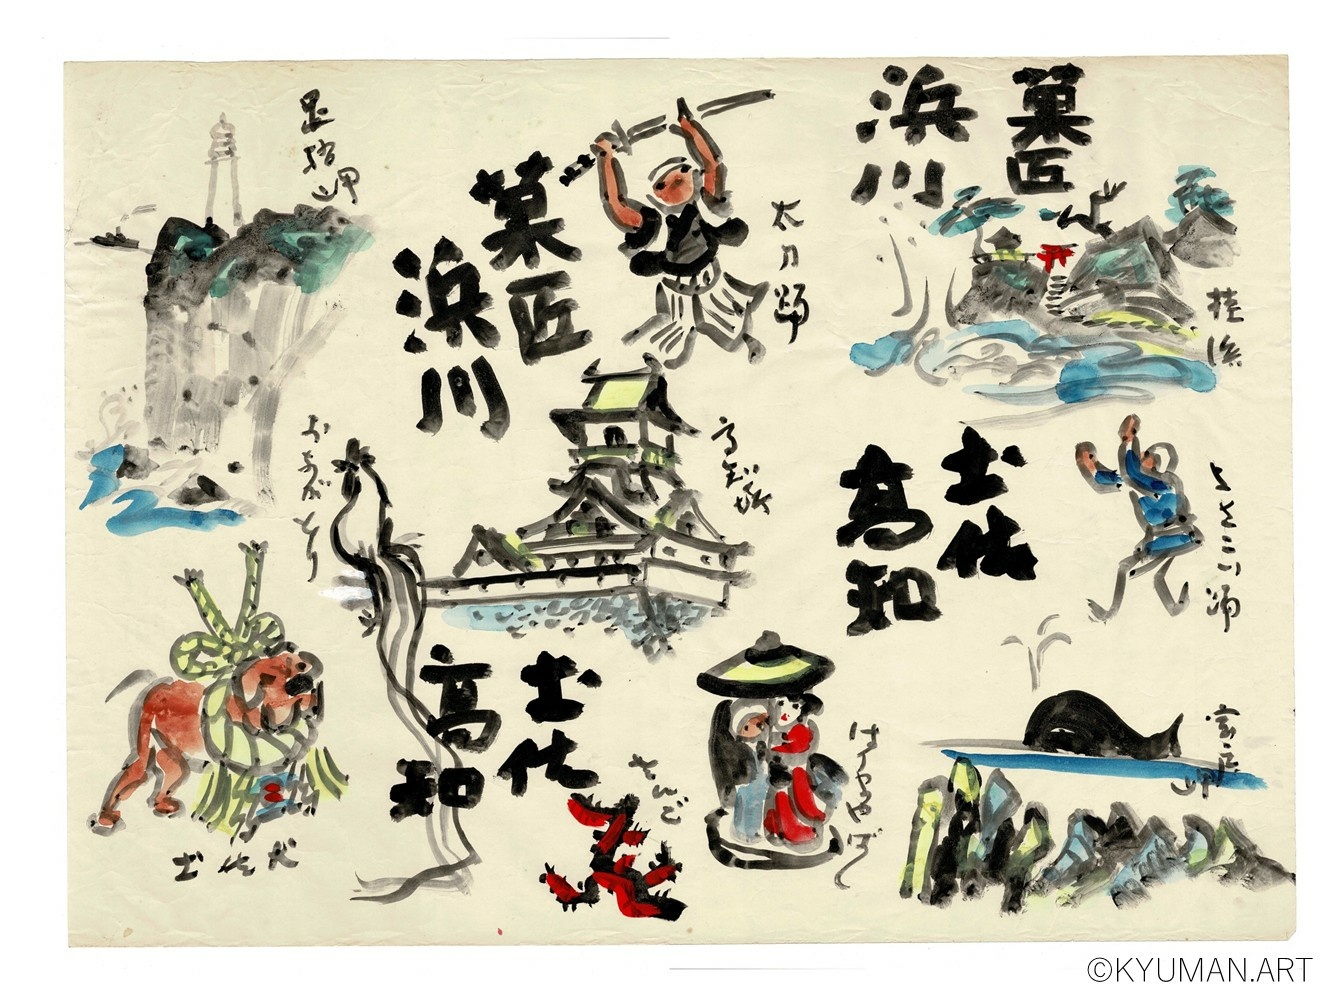 菓匠
浜川
桂浜
土佐
高知
よさこい踊
室戸
岬
太刀踊
菓匠
浜川
高知城
足摺岬
おながどり
土佐
高知
はりやまばし
さんご
土佐犬
©KYUMAN.ART